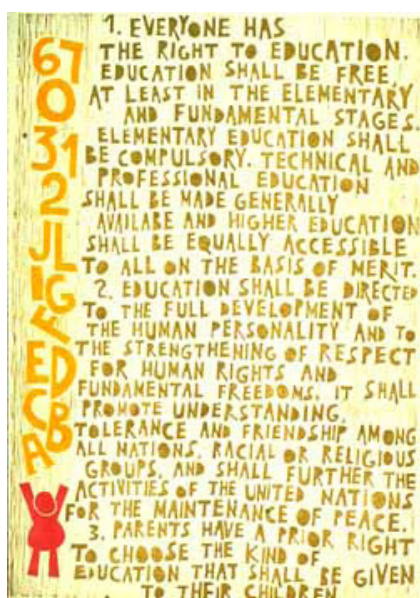 1. EVERYONE HAS
THE RIGHT TO EDUCATION.
EDUCATION SHALL BE FREE,
AT LEAST IN THE ELEMENTARY
AND FUNDAMENTAL STAGES
ELEMENTARY EDUCATION SHALL
BE COMPULSORY. TECHNICAL AND
PROFESSIONAL EDUCATION
SHALL BE MADE GENERALLY
AVAILABE AND HIGHER EDUCATION
SHALL BE EQUALLY ACCESSIBLE
TO ALL ON THE BASIS OF MERIT
2. EDUCATION SHALL BE DIRECTED
TO THE FULL DEVELOPMENT OF
THE HUMAN PERSONALITY AND TO
THE STRENGTHENING OF RESPECT
FOR HUMAN RIGHTS AND
FUNDAMENTAL FREEDOMS. IT SHALL
PROMOTE UNDERSTANDING,
TOLERANCE AND FRIENDSHIP AMONG
ALL NATIONS, RACIAL OR RELIGIOUS
GROUPS, AND SHALL FURTHER THE
ACTIVITIES OF THE UNITED NATIONS
FOR THE MAINTENANCE OF PEACE.
3. PARENTS HAVE A PRIOR RIGHT
TO CHOOSE THE KIND OF
EDUCATION THAT SHALL BE GIVEN
TO THEIR CHILDREN
67
0
31
2
JL
IG
F
ED
CB
A